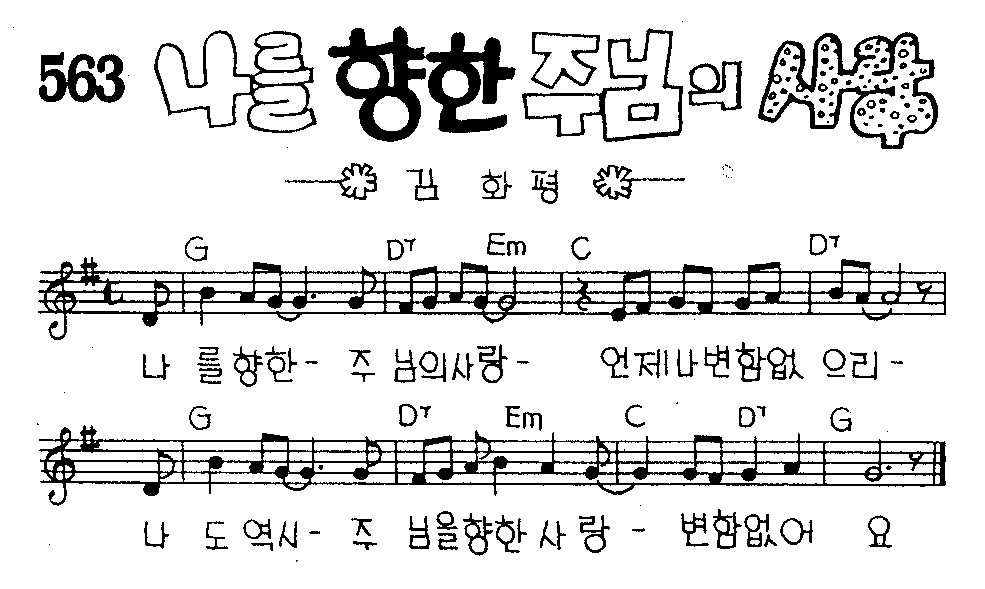 563 나를 향한 주님의 사랑
김 화 평
G D7 Em C D7
나 를향한- 주 님의사랑- 언제나변함없 으리-
G D7 Em C D7 G
나 도 역시- 주 님을향한 사 랑 - 변함없어 요